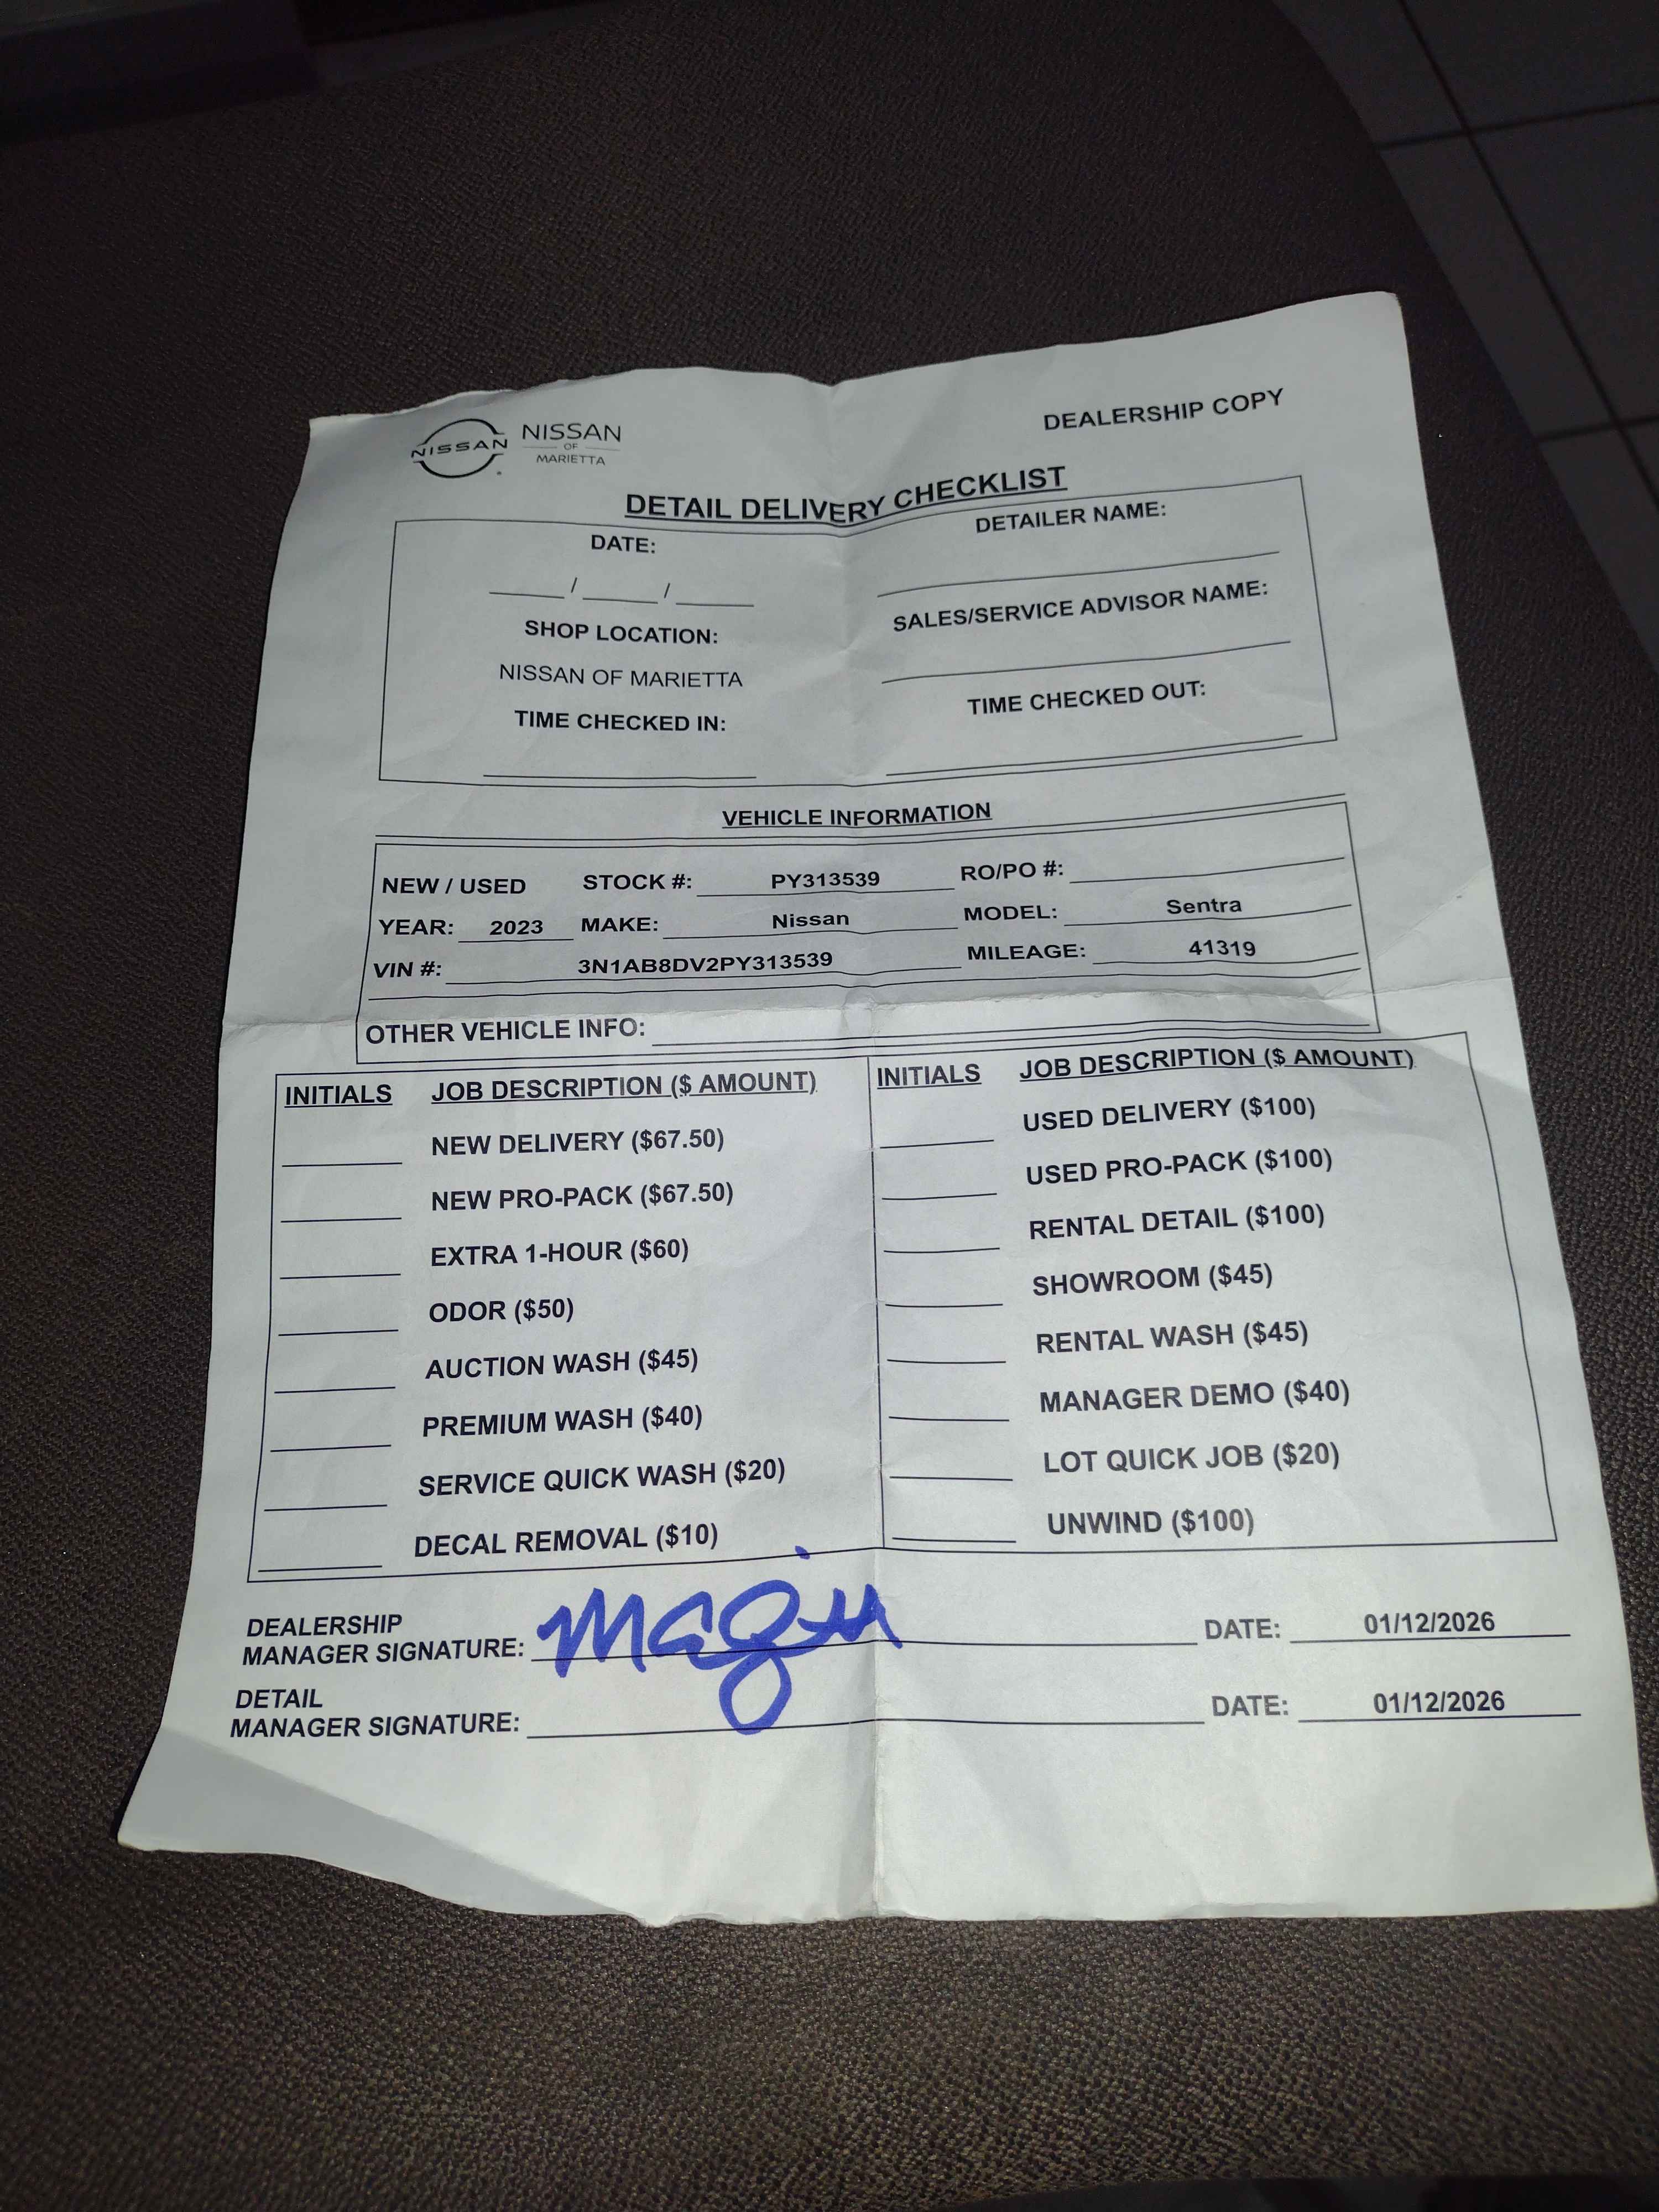 DEALERSHIP COPY
NISSAN
NISSAN
OF
MARIETTA
DETAIL DELIVERY CHECKLIST
DATE:
___ / ___ / ___
SHOP LOCATION:
NISSAN OF MARIETTA
TIME CHECKED IN:
DETAILER NAME:
SALES/SERVICE ADVISOR NAME:
TIME CHECKED OUT:
VEHICLE INFORMATION
NEW / USED STOCK #: PY313539 RO/PO #:
YEAR: 2023 MAKE: Nissan MODEL: Sentra
VIN #: 3N1AB8DV2PY313539 MILEAGE: 41319
OTHER VEHICLE INFO:
INITIALS JOB DESCRIPTION ($ AMOUNT)
NEW DELIVERY ($67.50)
NEW PRO-PACK ($67.50)
EXTRA 1-HOUR ($60)
ODOR ($50)
AUCTION WASH ($45)
PREMIUM WASH ($40)
SERVICE QUICK WASH ($20)
DECAL REMOVAL ($10)
INITIALS JOB DESCRIPTION ($ AMOUNT)
USED DELIVERY ($100)
USED PRO-PACK ($100)
RENTAL DETAIL ($100)
SHOWROOM ($45)
RENTAL WASH ($45)
MANAGER DEMO ($40)
LOT QUICK JOB ($20)
UNWIND ($100)
DEALERSHIP
MANAGER SIGNATURE: DATE: 01/12/2026
DETAIL
MANAGER SIGNATURE: DATE: 01/12/2026